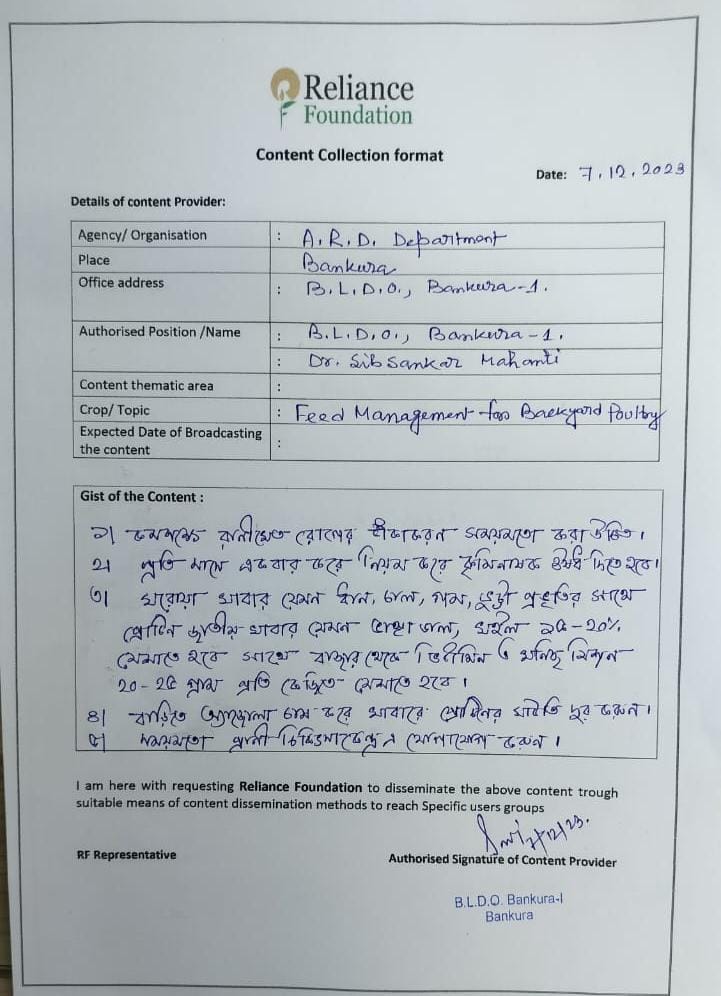 Reliance
Foundation
Content Collection format
Date: 7.12.2023
Details of content Provider:
Agency/ Organisation : A.R.D. Department
Place Bankura
Office address : B.L.D.O., Bankura-1.
Authorised Position /Name : B.L.D.O., Bankura-1.
: Dr. Sib Sankar Mahanti
Content thematic area :
Crop/ Topic : Feed Management for Backyard Poultry
Expected Date of Broadcasting
the content :
Gist of the Content :
১। রানীক্ষেত রোগের টীকাকরন সময়মতো করা উচিত।
২। প্রতি মাসে একবার করে নিয়ম করে কৃমিনাশক ঔষধ দিতে হবে।
৩। ঘরোয়া খাবার যেমন ধান, চাল, গম, ভুট্টা প্রভৃতির সাথে
প্রোটিন জাতীয় খাবার যেমন ভাঙ্গা ডাল, খইল ১৫-২০%
মেশাতে হবে সাথে বাজার থেকে ভিটামিন ও খনিজ মিশ্রন
২০-২৫ গ্রাম প্রতি কেজিতে মেশাতে হবে।
৪। বাড়িতে অ্যাজোলা চাষ করে খাবারে প্রোটিনের ঘাটতি দূর করুন।
৫। সময়মতো প্রানী চিকিৎসাকেন্দ্রে যোগাযোগ করুন।
I am here with requesting Reliance Foundation to disseminate the above content trough
suitable means of content dissemination methods to reach Specific users groups
RF Representative
Authorised Signature of Content Provider
B.L.D.O. Bankura-I
Bankura